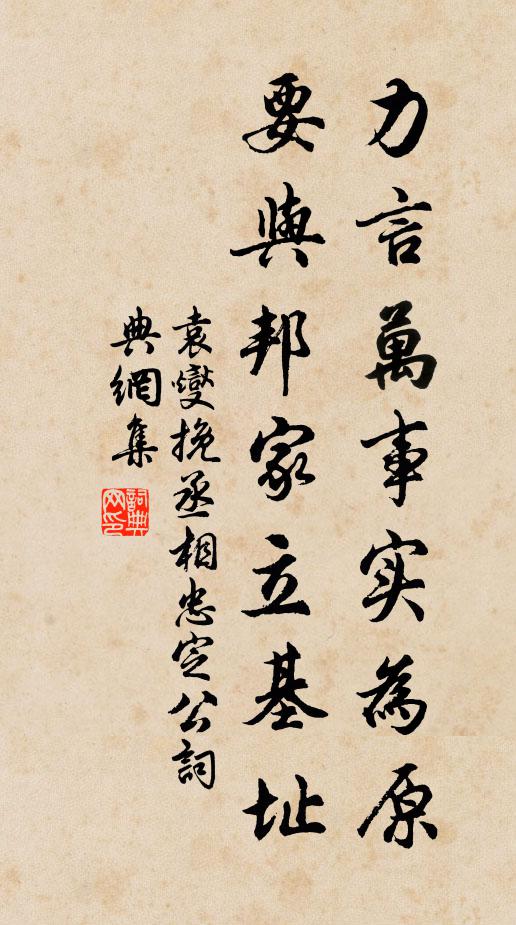 力言萬事实為原
要與邦家立基址
袁燮挽丞相忠定公詞
典網集
詞典網印